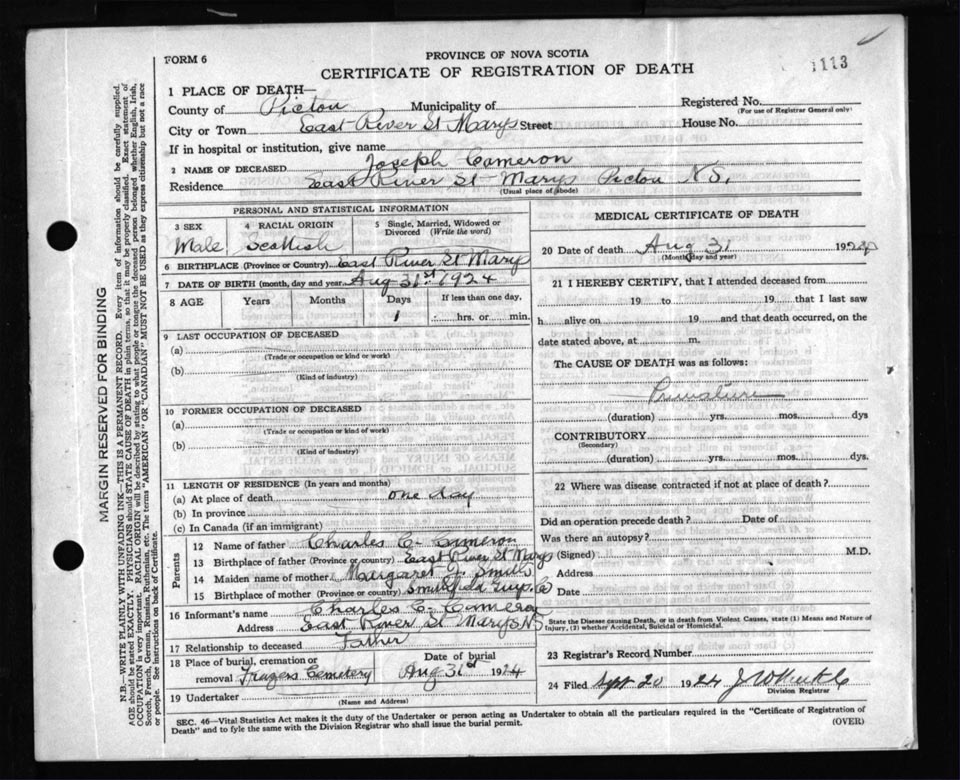 FORM 6
PROVINCE OF NOVA SCOTIA
CERTIFICATE OF REGISTRATION OF DEATH
1113
1 PLACE OF DEATH—
County of Pictou Municipality of Registered No.
(For use of Registrar General only)
City or Town East River St Marys Street House No.
If in hospital or institution, give name
2 NAME OF DECEASED Joseph Cameron
Residence East River St Marys Pictou N.S.
(Usual place of abode)
PERSONAL AND STATISTICAL INFORMATION
3 SEX 4 RACIAL ORIGIN 5 Single, Married, Widowed or Divorced (Write the word)
Male Scottish
6 BIRTHPLACE (Province or Country) East River St Marys
7 DATE OF BIRTH (month, day and year) Aug 31st 1924
8 AGE Years Months Days If less than one day,
1 hrs. or min.
9 LAST OCCUPATION OF DECEASED
(a)
(Trade or occupation or kind or work)
(b)
(Kind of industry)
10 FORMER OCCUPATION OF DECEASED
(a)
(Trade or occupation or kind of work)
(b)
(Kind of industry)
11 LENGTH OF RESIDENCE (In years and months)
(a) At place of death one day
(b) In province
(c) In Canada (if an immigrant)
Parents
12 Name of father Charles C. Cameron
13 Birthplace of father (Province or country) East River St Marys
14 Maiden name of mother Margaret J. Smith
15 Birthplace of mother (Province or country) Smithfield Guys. Co
16 Informant's name Charles C. Cameron
Address East River St Marys NS
17 Relationship to deceased Father
18 Place of burial, cremation or removal Frazers Cemetery Date of burial Aug 31st 1924
19 Undertaker
(Name and Address)
MEDICAL CERTIFICATE OF DEATH
20 Date of death Aug 31 1924
(Month, day and year)
21 I HEREBY CERTIFY, that I attended deceased from
19 to 19 that I last saw
h alive on 19 and that death occurred, on the
date stated above, at m.
The CAUSE OF DEATH was as follows:
Premature
(duration) yrs. mos. dys
CONTRIBUTORY
(Secondary)
(duration) yrs. mos. dys.
22 Where was disease contracted if not at place of death?
Did an operation precede death? Date of
Was there an autopsy?
(Signed) M.D.
Address
Date
State the Disease causing Death, or in death from Violent Causes, state (1) Means and Nature of
Injury, (2) whether Accidental, Suicidal or Homicidal.
23 Registrar's Record Number
24 Filed Sept 20 1924
Division Registrar
SEC. 46—Vital Statistics Act makes it the duty of the Undertaker or person acting as Undertaker to obtain all the particulars required in the "Certificate of Registration of
Death" and to fyle the same with the Division Registrar who shall issue the burial permit.
(OVER)
MARGIN RESERVED FOR BINDING
N.B.—WRITE PLAINLY WITH UNFADING INK—THIS IS A PERMANENT RECORD. Every item of information should be carefully supplied.
AGE should be stated EXACTLY. PHYSICIANS should STATE CAUSE OF DEATH in plain terms, so that it may be properly classified. Exact statement of
OCCUPATION is very important. RACIAL ORIGIN will be described by stating to what people or tongue the deceased person belonged whether English, Irish,
Scotch, French, German, Russian, Ruthenian, etc. The terms "AMERICAN" OR "CANADIAN" MUST NOT BE USED as they express citizenship but not a race
or people. See instructions on back of Certificate.